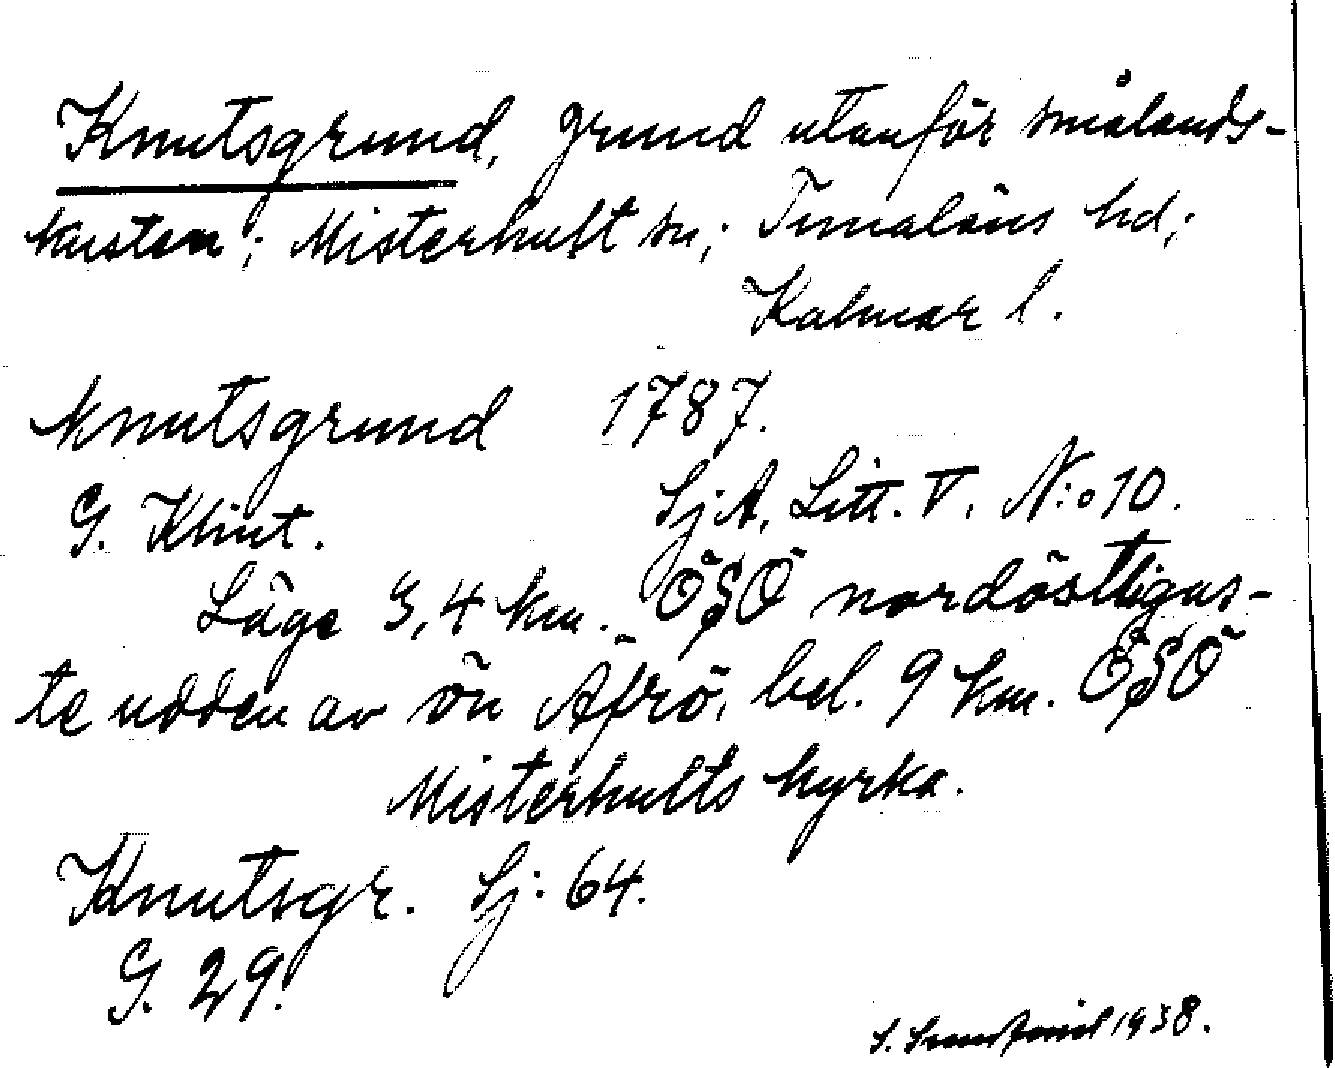 Knutsgrund, grund utanför smålands-
kusten; Misterhult sn; Tunaläns hd;
Kalmar l.
Knutsgrund 1787.
G. Klint. Sj.A, Litt. V. N:o 10.
Läge 3,4 km. ÖSÖ nordöstligas-
te udden av ön Äfrö, bel. 9 km. ÖSÖ
Misterhults kyrka.
Knutsgr. Sj: 64.
G. 29.
S. 1938.